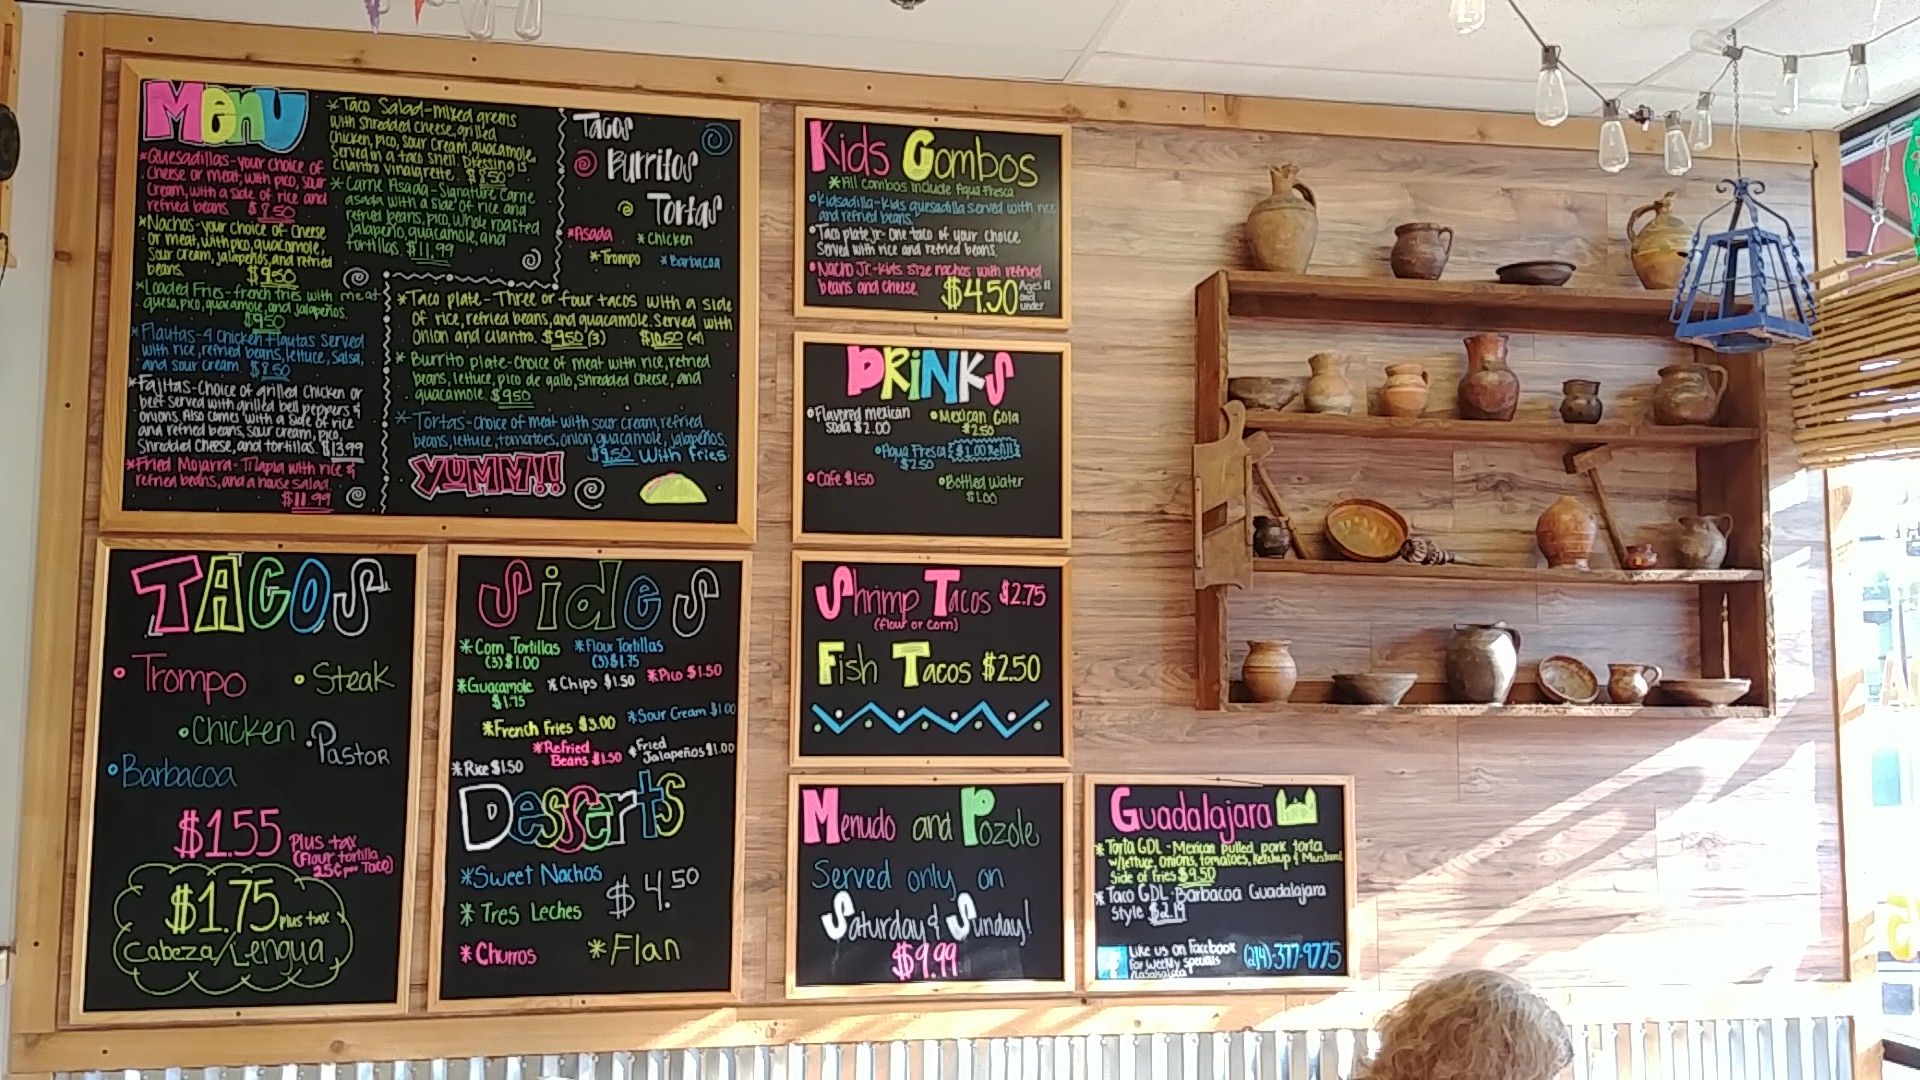 Menu
*Quesadillas-your choice of
cheese or meat, with pico, sour
cream, with a side of rice and
refried beans. $8.50
*Nachos-your choice of cheese
or meat, with pico, guacamole,
sour cream, jalapeños, and refried
beans. $9.50
*Loaded Fries-french fries with meat
queso, pico, guacamole, and jalapeños.
$9.50
*Flautas-4 chicken flautas served
with rice, refried beans, lettuce, salsa,
and sour cream. $8.50
*Fajitas-choice of grilled chicken or
beef served with grilled bell peppers &
onions. Also comes with a side of rice
and refried beans, sour cream, pico,
shredded cheese, and tortillas. $13.99
*Fried Mojarra-Tilapia with rice &
refried beans, and a house salad.
$11.99
*Taco Salad-mixed greens
with shredded cheese, grilled
chicken, pico, sour cream, guacamole.
Served in a taco shell. Dressing is
cilantro vinaigrette. $8.50
*Carne Asada-Signature Carne
asada with a side of rice and
refried beans, pico, whole roasted
jalapeño, guacamole, and
tortillas. $11.99
Tacos
Burritos
Tortas
*Asada *Chicken
*Trompo *Barbacoa
*Taco plate-Three or four tacos with a side
of rice, refried beans, and guacamole. Served with
onion and cilantro. $9.50 (3) $10.50 (4)
*Burrito plate-choice of meat with rice, refried
beans, lettuce, pico de gallo, shredded cheese, and
guacamole. $9.50
*Tortas-choice of meat with sour cream, refried
beans, lettuce, tomatoes, onion, guacamole, jalapeños.
$9.50 with fries
YUMM!!
Kids Combos
*All combos include Agua Fresca
•Kidsadilla-kids quesadilla served with rice
and refried beans.
•Taco plate jr-one taco of your choice
served with rice and refried beans.
•Nacho Jr-kids size nachos with refried
beans and cheese. $4.50 Ages 11
and
under
DRiNKS
•Flavored mexican
soda $2.00
•Mexican Cola
$2.50
•Agua Fresca $1.00 Refill
$2.50
•Cafe $1.50
•Bottled Water
$1.00
TACOS
•Trompo •Steak
•Chicken •Pastor
•Barbacoa
$1.55 Plus tax
(Flour tortilla
25¢ per Taco)
$1.75 plus tax
Cabeza/Lengua
Sides
*Corn Tortillas
(3) $1.00
*Flour Tortillas
(3) $1.75
*Guacamole
$1.75
*Chips $1.50 *Pico $1.50
*French Fries $3.00 *Sour Cream $1.00
*Refried
Beans $1.50
*Fried
Jalapeños $1.00
*Rice $1.50
Desserts
*Sweet Nachos
$4.50
*Tres Leches
*Churros *Flan
Shrimp Tacos $2.75
(flour or corn)
Fish Tacos $2.50
Menudo and Pozole
Served only on
Saturday & Sunday!
$9.99
Guadalajara
*Torta GDL-Mexican pulled pork torta
w/lettuce, onions, tomatoes, ketchup & Mustard
Side of fries $9.50
*Taco GDL-Barbacoa Guadalajara
style $2.19
Like us on Facebook
for weekly specials
(214)-377-9775